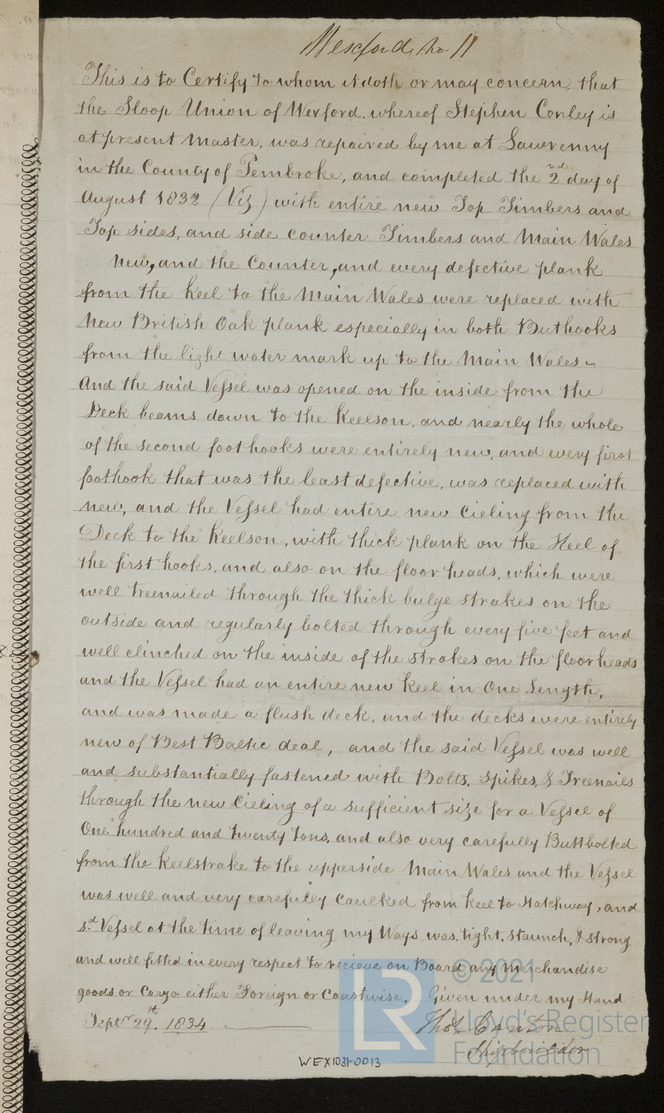 Wexford No 11
This is to Certify to whom it doth or may concern, that
the Sloop Union of Wexford, whereof Stephen Conley is
at present Master, was repaired by me at Lawrenny
in the County of Pembroke, and completed the 2nd day of
August 1832 (Viz) with entire new Top Timbers and
Top sides, and side counter Timbers and Main Wales
new, and the Counter, and every defective plank
from the Keel to the Main Wales were replaced with
New British Oak plank especially in both Buthooks
from the light water mark up to the Main Wales –
And the said Vessel was opened on the inside from the
Deck beams down to the Keelson, and nearly the whole
of the second foothooks were entirely new, and every first
foothook that was the least defective, was replaced with
new, and the Vessel had entire new Cieling from the
Deck to the Keelson, with thick plank on the Heel of
the first hooks, and also on the floor heads, which were
well treenailed through the thick bulge strakes on the
outside and regularly bolted through every five feet and
well clinched on the inside of the strakes on the floorheads
and the Vessel had an entire new Keel in One Length,
and was made a flush deck, and the decks were entirely
new of Best Baltic deal, and the said Vessel was well
and substantially fastened with Bolts, Spikes, & Treenails
through the new Cieling of a sufficient size for a Vessel of
One hundred and twenty tons, and also very carefully Buttbolted
from the Keelstrake to the upperside Main Wales and the Vessel
was well and very carefully Caulked from Keel to Hatchway, and
sd Vessel at the time of leaving my Ways was, tight, staunch, & strong
and well fitted in every respect to recieve on Board any Merchandise
goods or Cargo either Foreign or Coastwise. Given under my Hand
Septr 29th 1834
Thos
Shipbuilder
WEX1031-0013
LR
© 2021
Lloyd's Register
Foundation